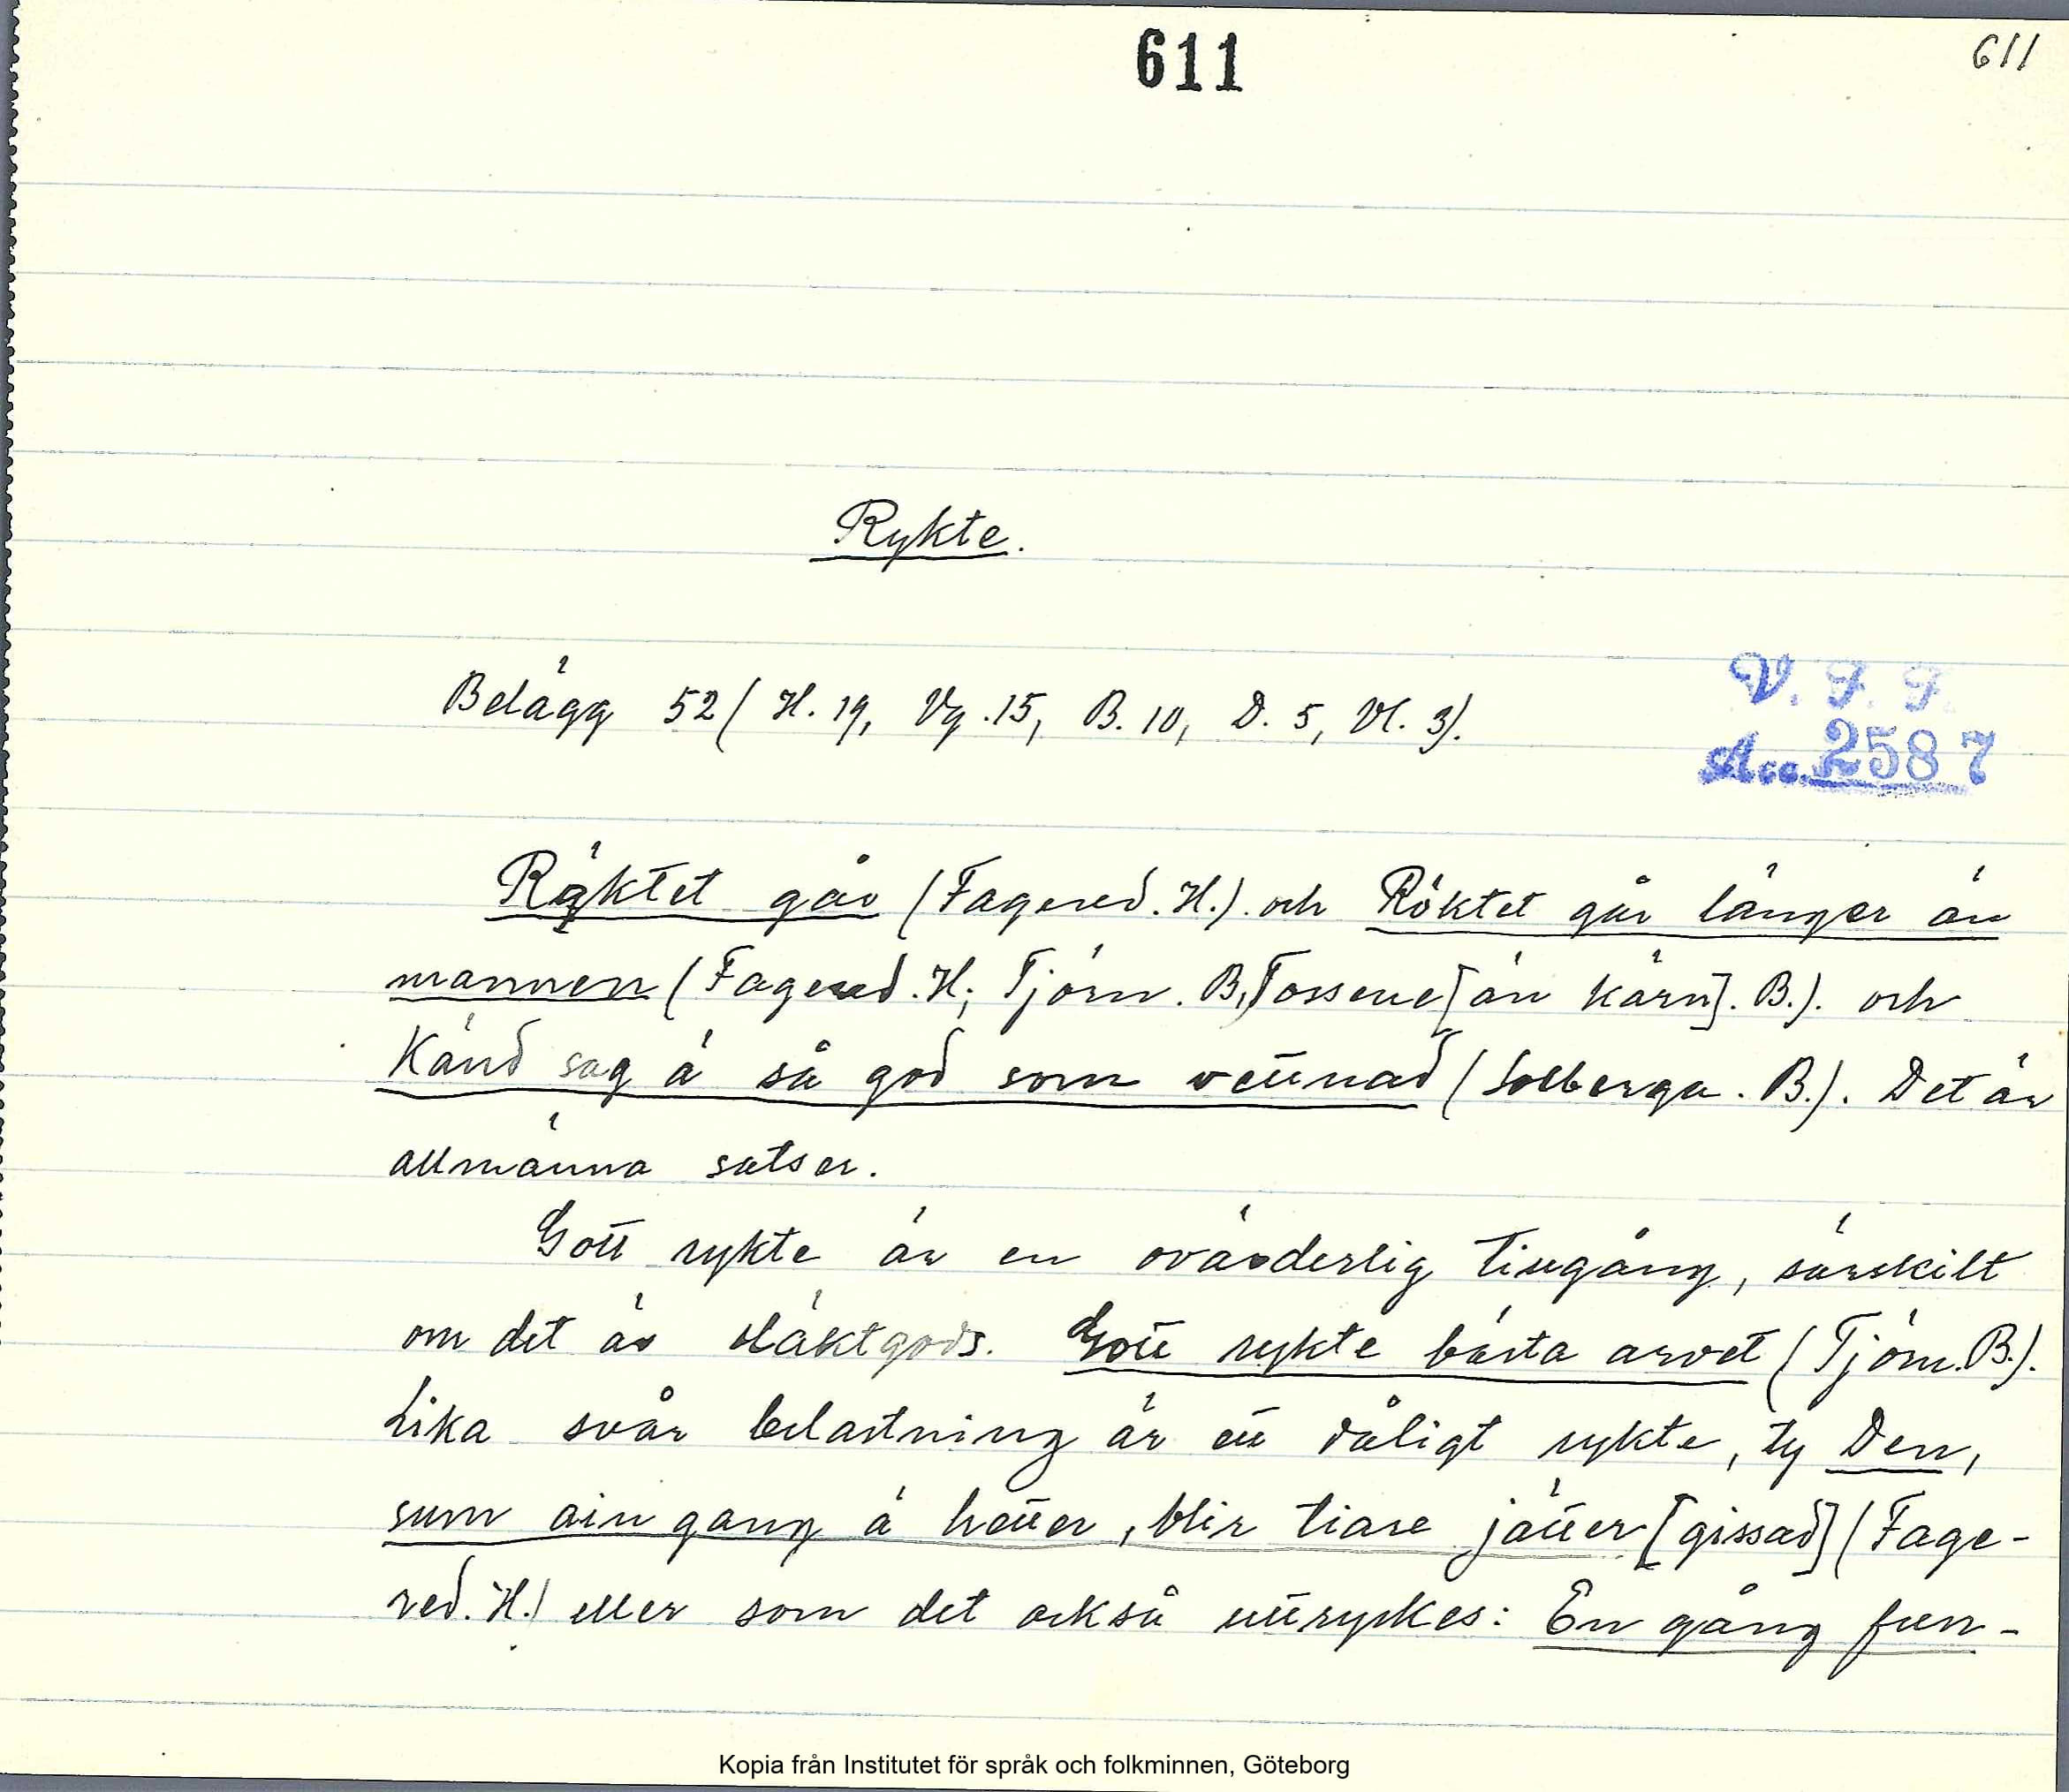 611
611
Rykte.
Belägg 52 (H. 19, Vg. 15, B. 10, D. 5, Vl. 3).
V. F. F.
Acc. 2587
Röktet går (Fagered. H.). och Röktet går länger än
mannen (Fagered. H; Tjörn. B, Tossene [än kärn]. B.). och
Känd sag ä så god som vettnad (Solberga. B.). Det är
allmänna satser.
Gott rykte är en ovärderlig tillgång, särskilt
om det är släktgods. Gott rykte bästa arvet (Tjörn. B.).
Lika svår belastning är ett dåligt rykte, ty Den,
sum ain gang ä hetter, blir tiare jätter [gissad] (Fage-
red. H.) eller som det också uttryckes: En gång fun-
Kopia från Institutet för språk och folkminnen, Göteborg